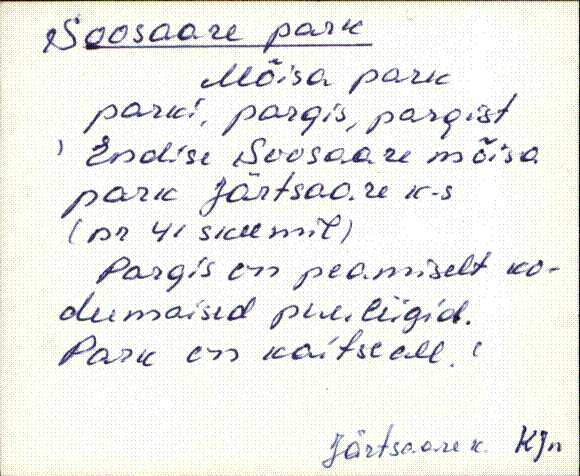 Soosaare park
Mõisa park
parki, pargis, pargist
' Endise Soosaare mõisa
park Järtsaare k-s
(nr 41 skeemil)
Pargis on peamiselt ko-
dumaised puuliigid.
Park on kaitse all. '
Järtsaare k. KJn